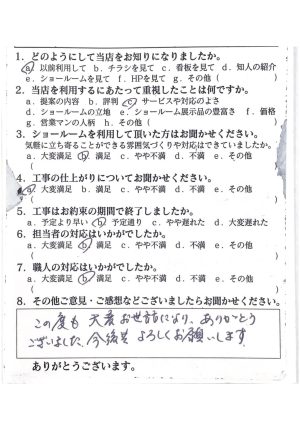 1. どのようにして当店をお知りになりましたか。
a. 以前利用して b. チラシを見て c. 看板を見て d. 知人の紹介
e. ショールームを見て f. HPを見て g. その他(
2. 当店を利用するにあたって重視したことは何ですか。
a. 提案の内容 b. 評判 c. サービスや対応のよさ
d. ショールームの立地 e. ショールーム展示品の豊富さ f. 価格
g. 営業マンの人柄 h. その他(
3. ショールームを利用して頂いた方はお聞かせください。
気軽に立ち寄ることができる雰囲気づくりや対応はできていましたか。
a. 大変満足 b. 満足 c. やや不満 d. 不満 e. その他
(
4. 工事の仕上がりについてお聞かせください。
a. 大変満足 b. 満足 c. やや不満 d. 不満 e. その他
(
5. 工事はお約束の期間で終了しましたか。
a. 予定より早い b. 予定通り c. やや遅れた d. 大変遅れた
6. 担当者の対応はいかがでしたか。
a. 大変満足 b. 満足 c. やや不満 d. 不満 e. その他
(
7. 職人の対応はいかがでしたか。
a. 大変満足 b. 満足 c. やや不満 d. 不満 e. その他
(
8. その他ご意見・ご感想などございましたらお聞かせください。
この度も 大変お世話になり、ありがとう
ございました。今後共 よろしくお願いします。
ありがとうございます。